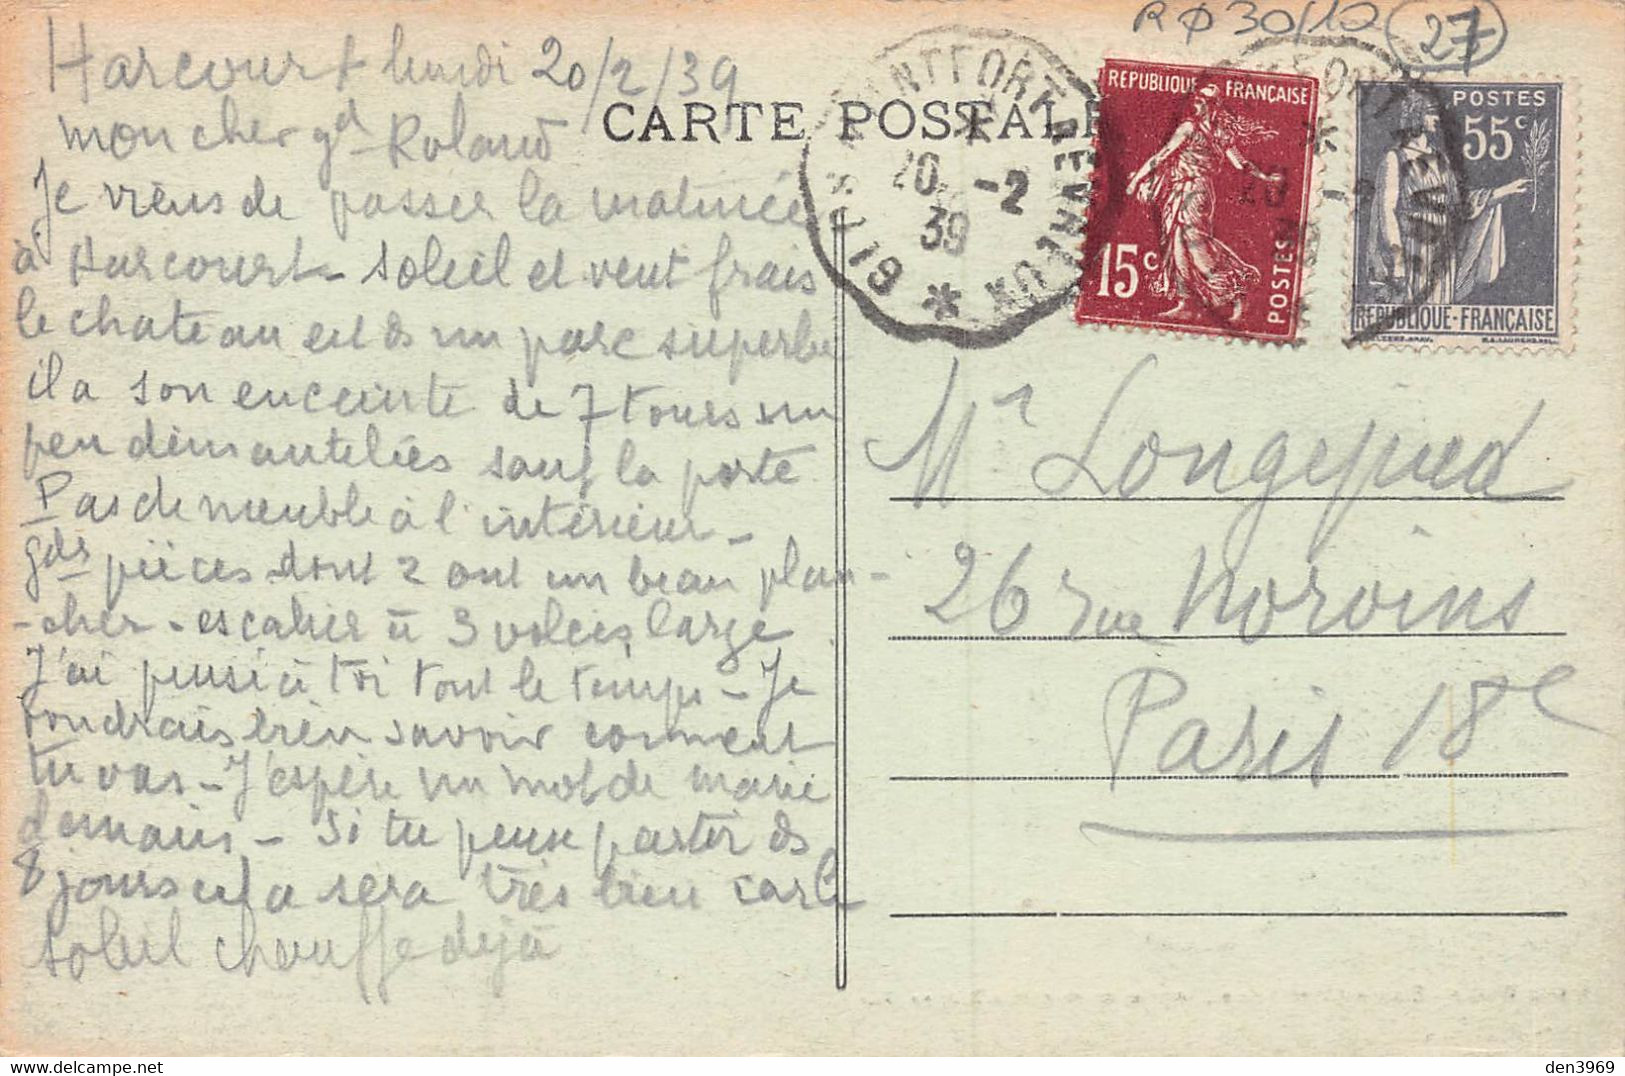 Harcourt lundi 20/2/39
mon cher gd Roland
Je viens de passer la matinée
à Harcourt - soleil et vent frais
le chateau est ds un parc superbe
il a son enceinte de 7 tours un
peu démantelées sauf la porte
Pas de meuble à l'intérieur -
gdes pièces dont 2 ont un beau plan-
-cher - escalier à 3 volées large
J'ai pensé à toi tout le temps - Je
voudrais bien savoir comment
tu vas - J'espère un mot de marie
demain - Si tu peux partir ds
8 jours cela sera très bien car le
soleil chauffe déjà
CARTE POSTALE
RØ 30/10
27
20 -2
39
REPUBLIQUE FRANÇAISE
15c
POSTES
POSTES
55c
REPUBLIQUE-FRANÇAISE
Mr Longepied
26 rue Norvins
Paris 18e
den3969